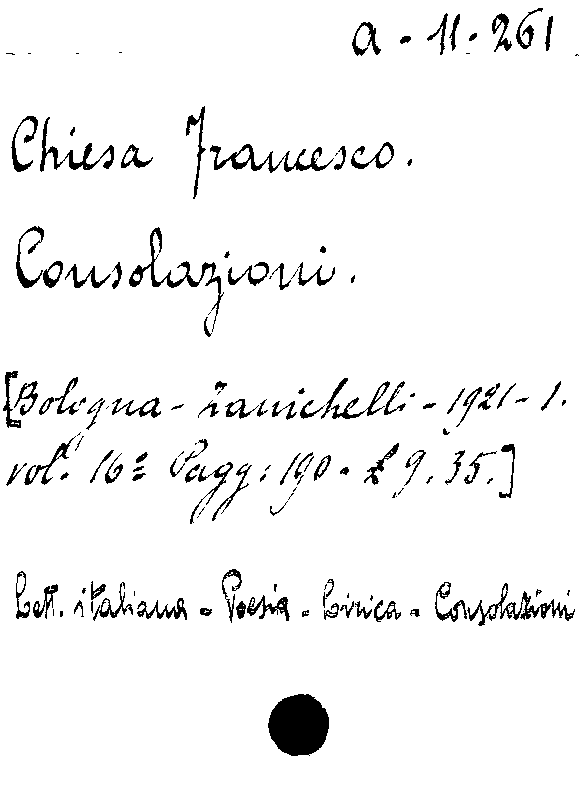 a - 11 - 261
Chiesa Francesco.
Consolazioni.
[Bologna - Zanichelli - 1921 - 1.
vol. 16º Pagg: 190 - £ 9.35.]
Lett. italiana - Poesia - Lirica - Consolazioni